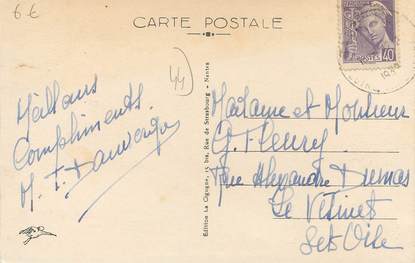 6 €
CARTE POSTALE
44
POSTES
40
1939
Meilleurs
Compliments.
M. F. Dauvergne
Edition La Cigogne, 15 bis, Rue de Strasbourg - Nantes
Madame et Monsieur
G. Fleury
Rue Alexandre Dumas
Le Vésinet
Set Oise